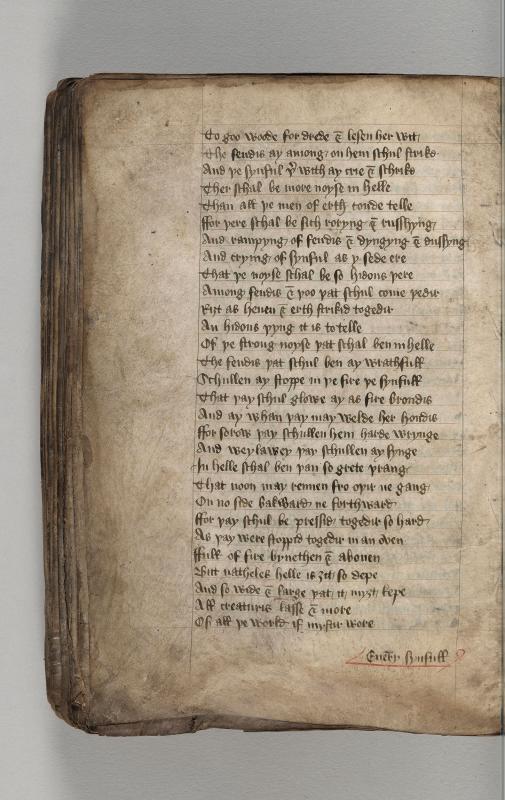 To goo woode for drede & lesen her wit
The fendis ay among on hem schul strike
And þe synful þer with ay crie & schrike
Ther schal be more noyse in helle
Than all þe men of erth coude telle
ffor þere schal be sich roryng & russhyng
And rampyng of fendis & dyngyng & dusshyng
And criyng of synful as y sede ere
That þe noyse schal be so hidous þere
Among fendis & þoo þat schul come þedir
Riȝt as heuen & erth strikid togedir
An hidous þyng it is to telle
Of þe strong noyse þat schal ben in helle
The fendis þat schul ben ay wrathfull
Schullen ay stoppe in þe fire þe synfull
That þay schul glowe ay as fire brondis
And ay whan þay may welde her hondis
ffor sorow þay schullen hem harde wrynge
And weylawey þay schullen ay synge
In helle schal ben þan so grete þrang
That noon may rennen fro oþir ne gang
On no side bakward ne forthward
ffor þay schul be pressid togedir so hard
As þay were stoppid togedir in an oven
ffull of fire bynethen & aboven
But natheles helle is ȝit so depe
And so wide & large þat it myȝt kepe
All creaturis lasse & more
Of all þe world if myster wore
Euery synfull